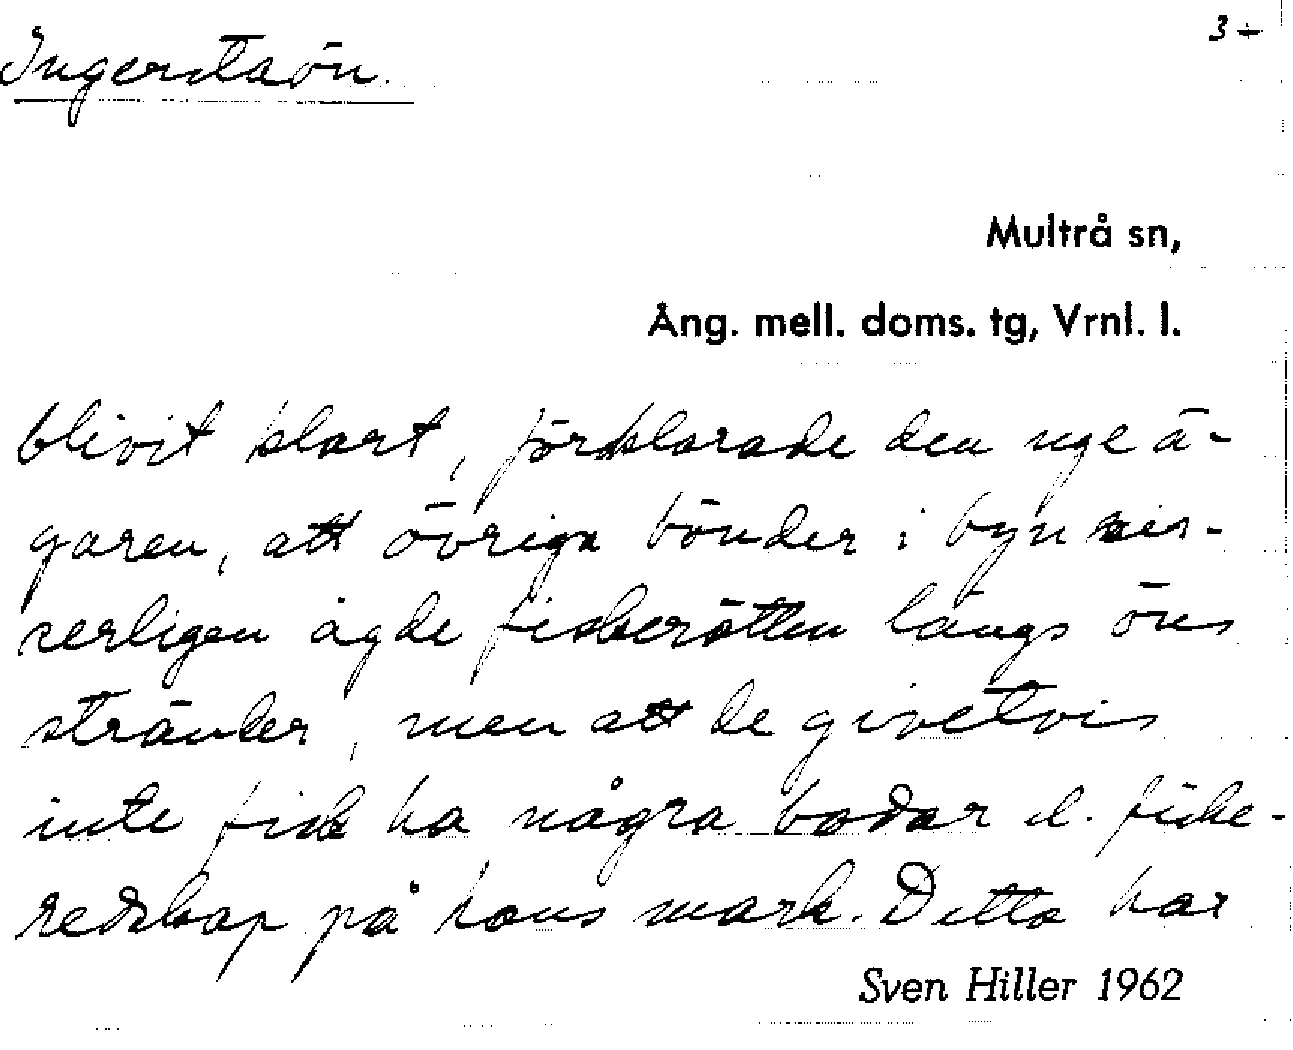 3
Ingerstaön.
Multrå sn,
Ång. mell. doms. tg, Vrnl. l.
blivit klart, förklarade den nye ä-
garen, att övriga bönder i byn vis-
serligen ägde fiskerätten längs öns
stränder, men att de givetvis
inte fick ha några bodar el. fiske-
redskap på hans mark. Detta har
Sven Hiller 1962